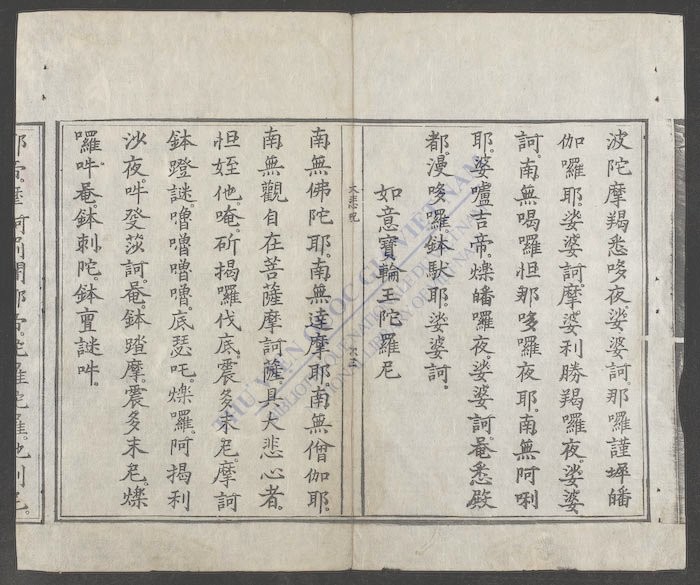 波陀摩羯悉哆夜。娑婆訶那羅謹墀皤
伽羅耶。娑婆訶。摩婆利勝羯羅夜。娑婆
訶。南無喝羅怛那哆羅夜耶。南無阿唎
耶。婆嚧吉帝。爍皤羅夜。娑婆訶。唵。悉殿
都。漫哆囉鉢馱耶。娑婆訶。
如意寶輪王陀羅尼
大悲咒
南無佛陀耶。南無達摩耶。南無僧伽耶。
南無觀自在菩薩摩訶薩具大悲心者。
怛姪他。唵。斫揭羅伐底。震多末尼摩訶
鉢蹬謎。嚕嚕嚕嚕。底瑟吒。爍羅。阿揭利
沙夜吽癹莎訶。唵。鉢蹅摩。震多末尼。爍
囉吽。唵。鉢剌陀。鉢亶謎吽。
THƯ VIỆN QUỐC GIA VIỆT NAM
BIBLIOTHÈQUE NATIONALE DU VIETNAM
NATIONAL LIBRARY OF VIETNAM